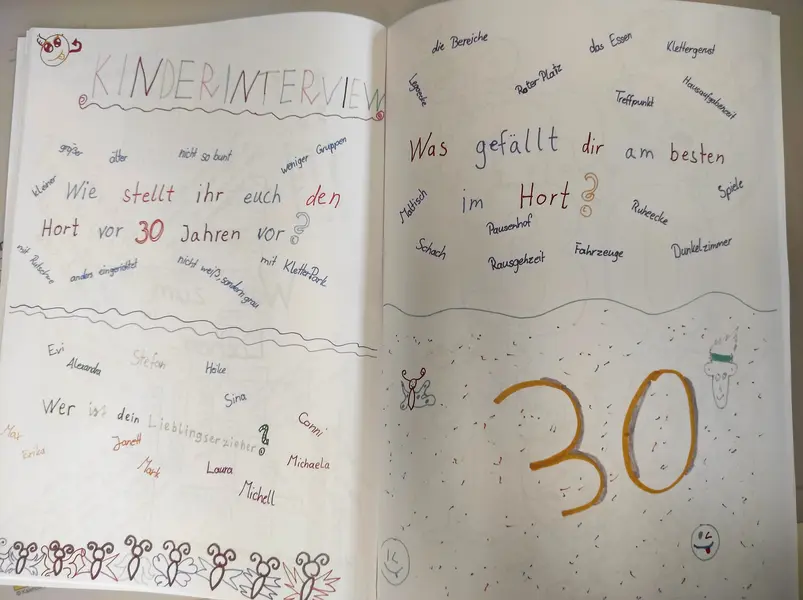 KINDERINTERVIEW
größer
älter
nicht so bunt
weniger Gruppen
kleiner
Wie stellt ihr euch den
Hort vor 30 Jahren vor?
mit Rutsche
anders eingerichtet
nicht weiß, sondern grau
mit KletterPark
Evi
Alexandra
Stefan
Heike
Sina
Wer ist dein Lieblingserzieher?
Conni
Max
Erika
Janett
Mark
Laura
Michaela
Michell
die Bereiche
das Essen
Klettergerüst
Legoecke
Roter Platz
Treffpunkt
Hausaufgabenzeit
Was gefällt dir am besten
im Hort?
Maltisch
Spiele
Pausenhof
Ruheecke
Schach
Rausgehzeit
Fahrzeuge
Dunkelzimmer
30